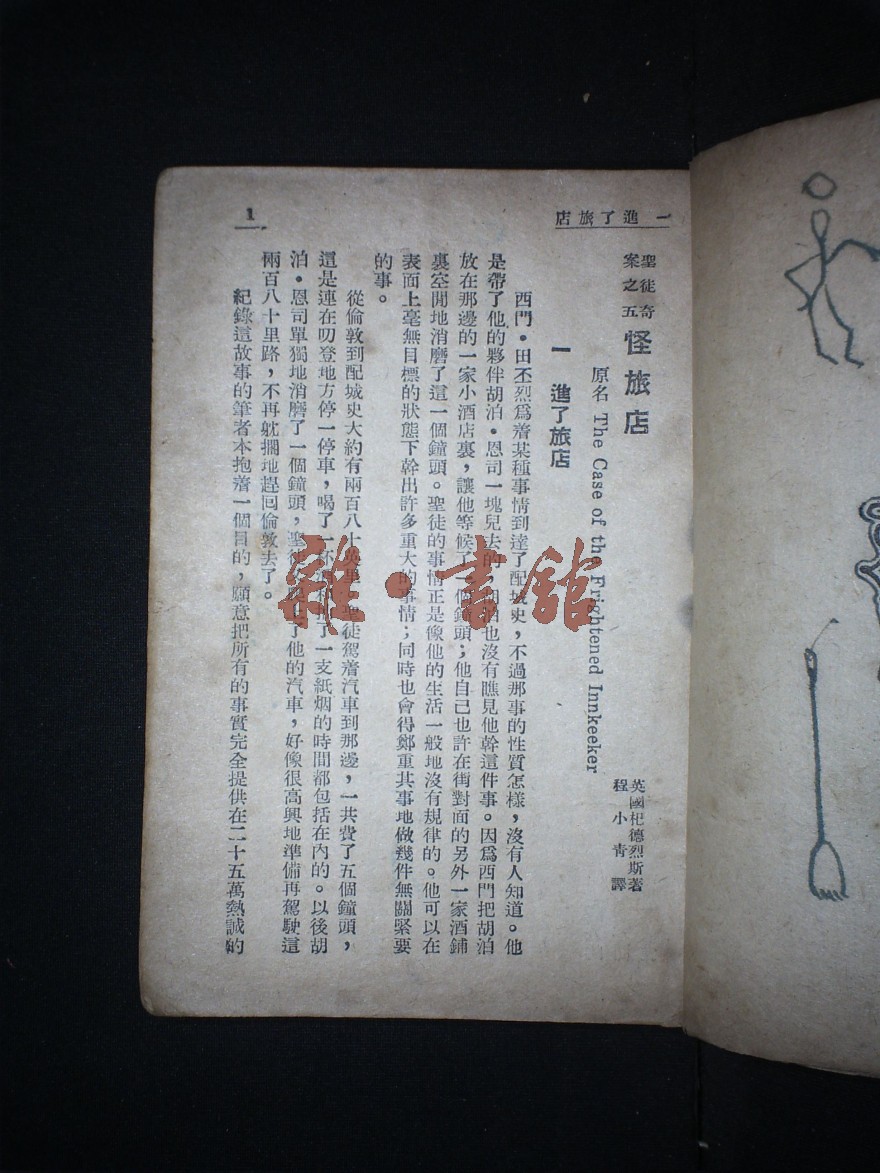 一 進了旅店
1
聖徒奇
案之五
怪旅店
原名 The Case of th Frightened Innkeeker
英國杞德烈斯著
程小青譯
一 進了旅店
西門·田丕烈爲着某種事情到達了配城史,不過那事的性質怎樣,沒有人知道。他
是帶了他的夥伴胡泊·恩司一塊兒去的,胡泊也沒有瞧見他幹這件事。因爲西門把胡泊
放在那邊的一家小酒店裏,讓他等候了一個鐘頭;他自己也許在街對面的另外一家酒鋪
裏空閒地消磨了這一個鐘頭。聖徒的事情正是像他的生活一般地沒有規律的。他可以在
表面上毫無目標的狀態下幹出許多重大的事情;同時也會得鄭重其事地做幾件無關緊要
的事。
從倫敦到配城史大約有兩百八十英里,聖徒駕着汽車到那邊,一共費了五個鐘頭,
這是連在叨登地方停一停車,喝了一杯 了一支紙烟的時間都包括在內的。以後胡
泊·恩司單獨地消磨了一個鐘頭,聖徒 了他的汽車,好像很高興地準備再駕駛這
兩百八十里路,不再躭擱地趕回倫敦去了。
紀錄這故事的筆者本抱着一個目的,願意把所有的事實完全提供在二十五萬熱誠的
雜·書館